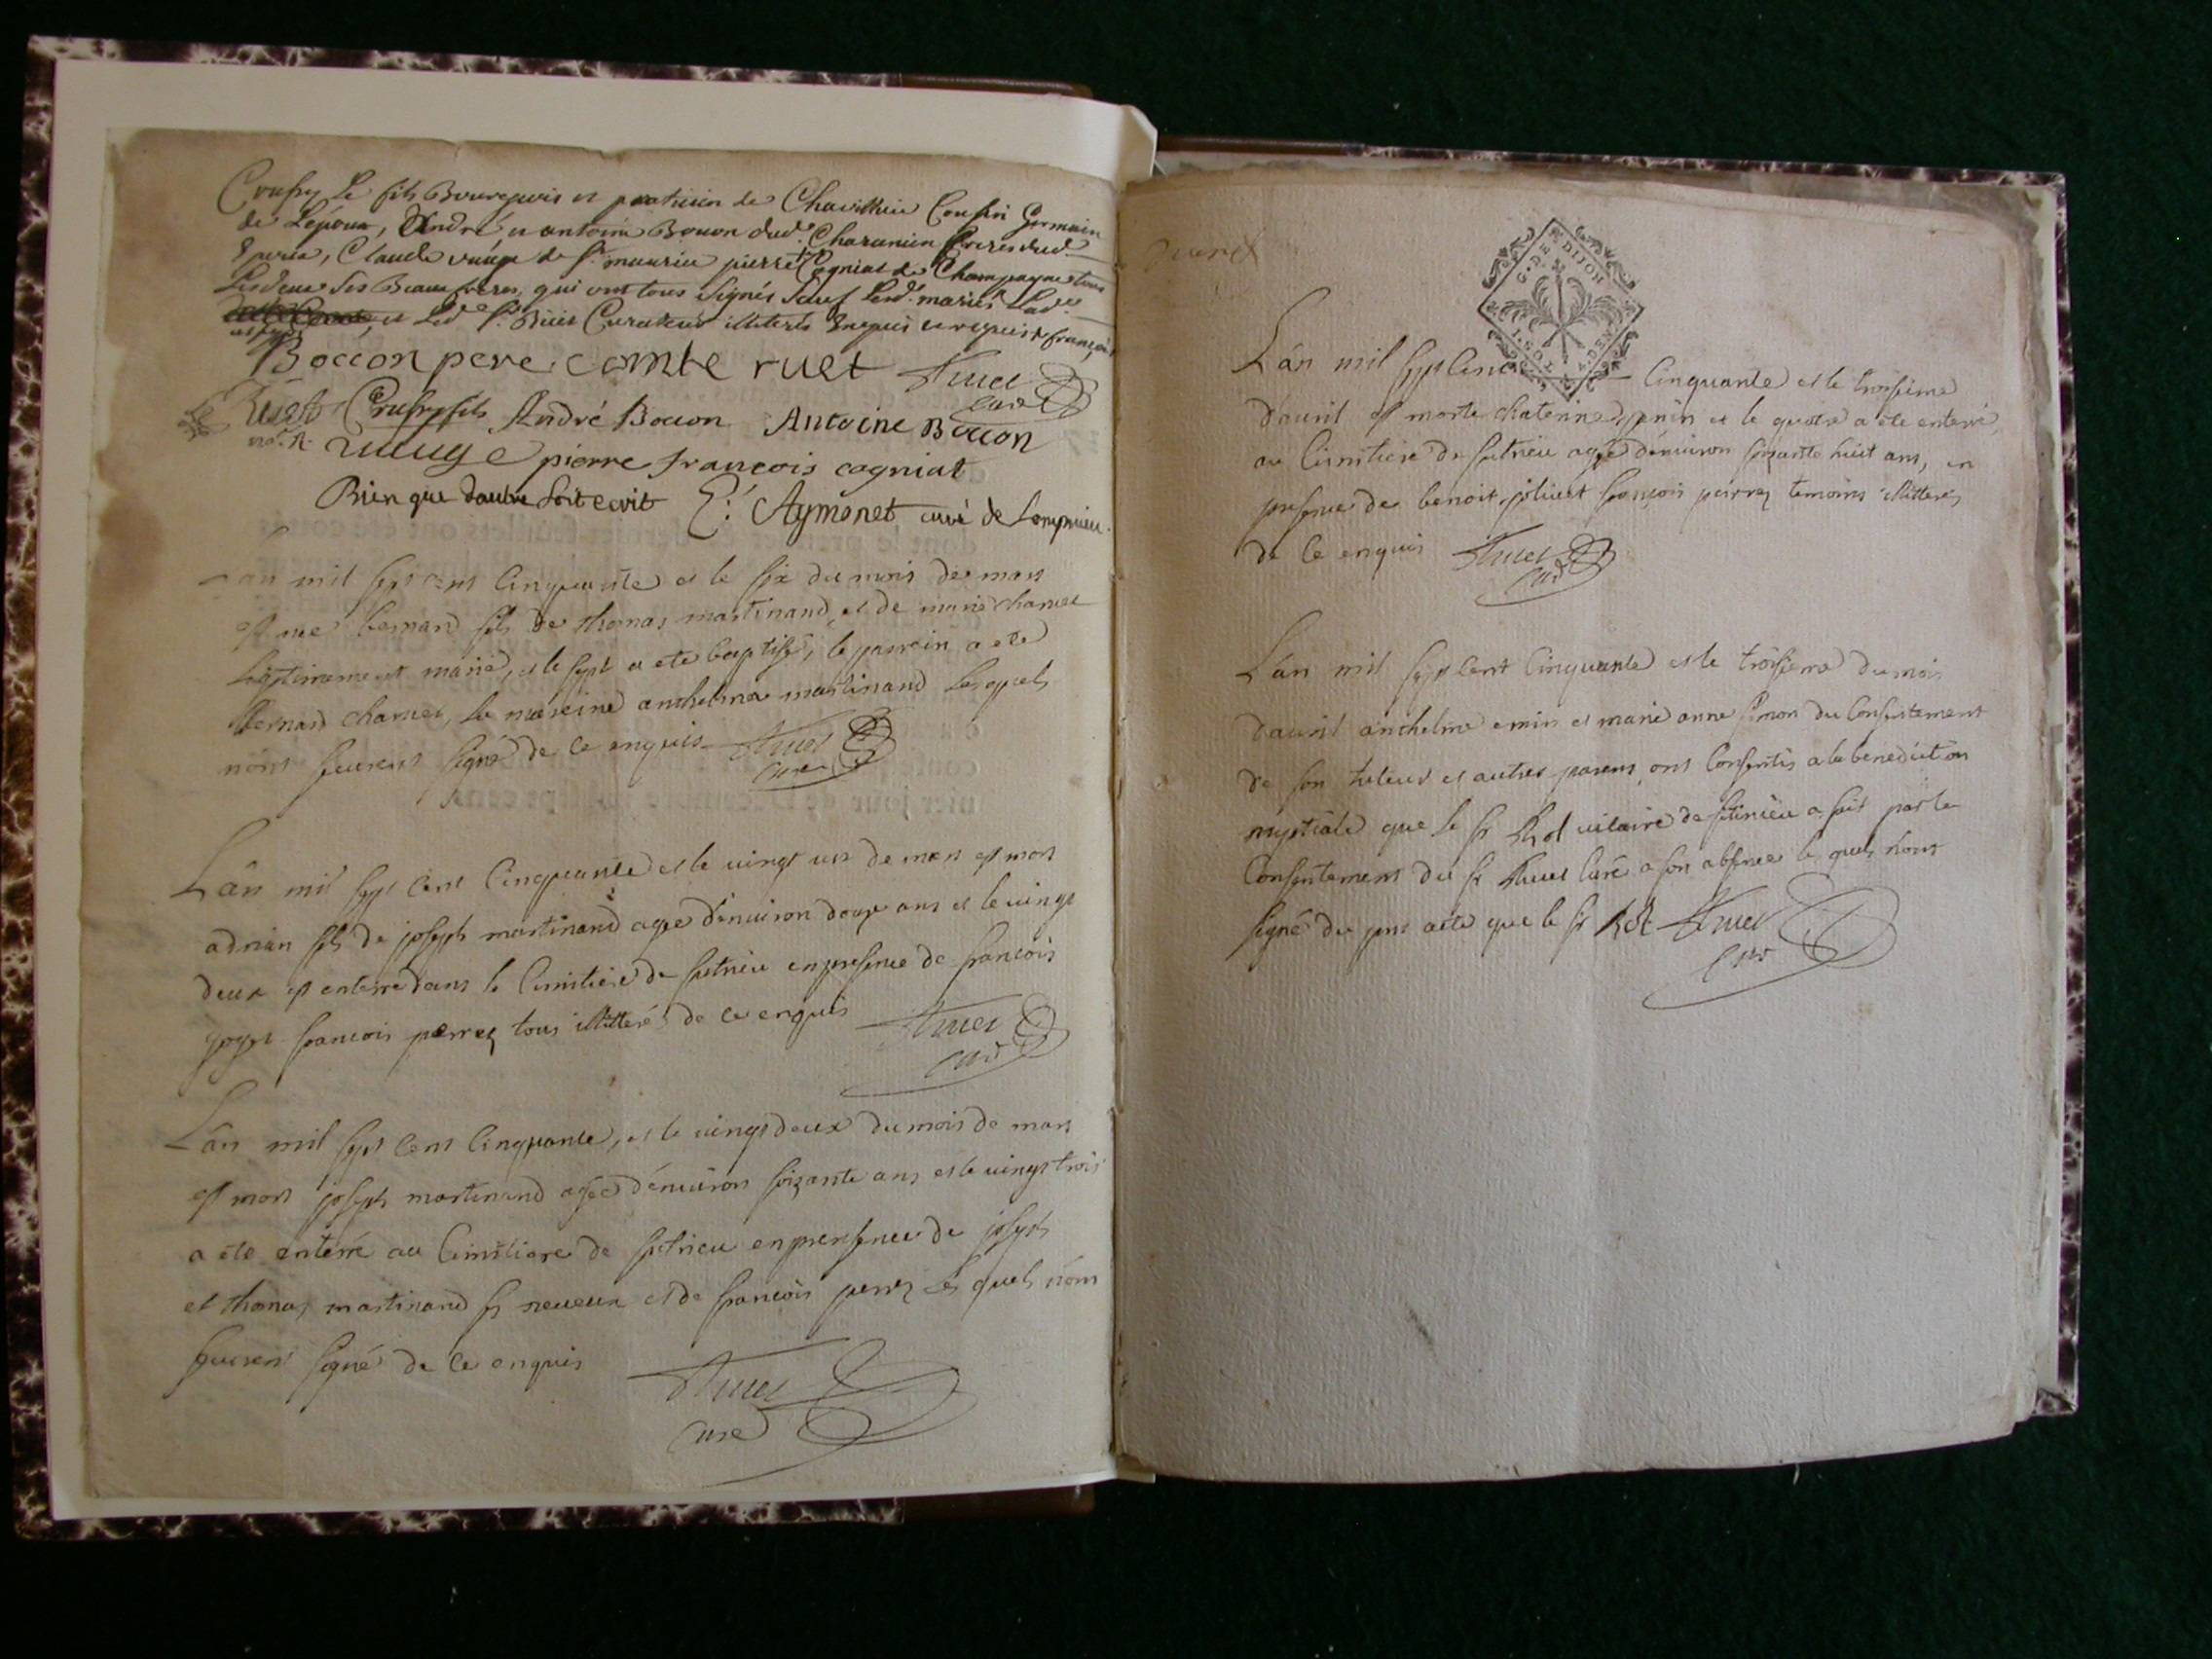 le fils Bourgeois et praticien de Cousin Germain
de Lépoux, André et antoine Bocon dud.
Claude de St. maurice pierre Cogniat de Champagne tous
Les deux ses Beaux freres, qui ont tous signés sauf mariés
et Curateur illiterés enquis et requis
Bocion pere comte ruet Curé
fils André Bocion Antoine Bocion
pierre francois cogniat
Bien que dautre soit ecrit Aymonet curé de Lompnieu.
Lan mil sept cens Cinquante et le six du mois de mars
est née bernard fils de thomas martinand, et de marie charvet
legitimement marié, et le sept a ete baptisé, le parrein a ete
Bernard charvet, La mareine anthelma martinand Lesquels
nont sceu signé de ce enquis curé
Lân mil sept cens Cinquante et le vingt un de mars est mort
adrian fils de joseph martinand agée dénuiron douze ans et le vingt
deux est enterré dans le Cimitiere de sutrieu en presence de francois
francois perrez tous illitteré de ce enquis
curé
Lân mil sept cens Cinquante, et le vingt deux du mois de mars
est mort joseph martinand agée dénuiron soizante ans et le vingt trois
a ete enterré au Cimitiere de sutrieu en presence de joseph
et thomas martinand ses neveux et de francois perrez Lesquels nont
sceu signé de ce enquis
curé
G. DE DIJON
Lân mil sept cent Cinquante et le troisieme
dauril est morte chaterine et le quatre a ete enterré
au Cimitiere de sutrieu agée dénuiron soizante huit ans, en
presence de benoit joliuet francois perrez temoins illitterés
de ce enquis
curé
Lân mil sept cent Cinquante et le troisieme du mois
dauril anthelme emin et marie anne simon du Consentement
de son tuteur et autres parens, ont Consentis a la benediction
nuptiale que le sr Rol vicaire de sutrieu a fait par le
Consentement du sr curé a son absence les quels nont
signé du pnt acte que le sr Rol
curé